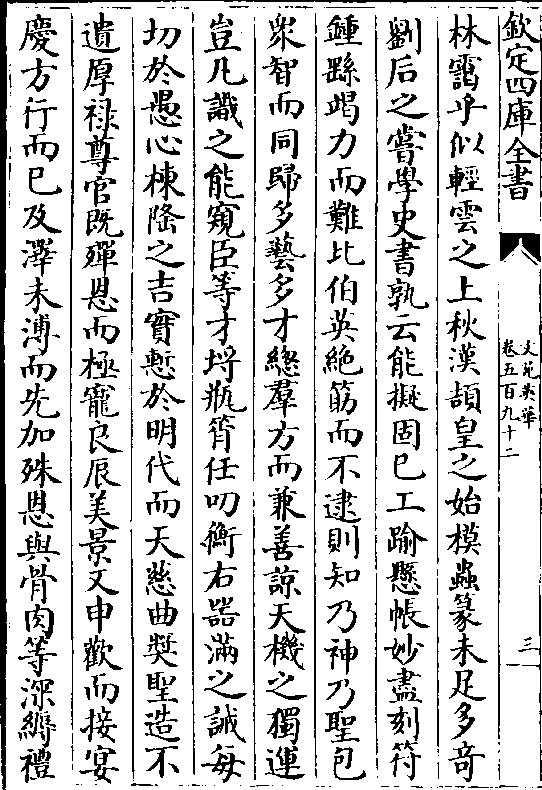 欽定四庫全書
文苑英華
卷五百九十二
三
林靄乎似輕雲之上秋漢頡皇之始模蟲篆未足多竒
劉后之嘗學史書孰云能擬固已工踰懸帳妙盡刻符
鍾繇竭力而難比伯英絶筋而不逮則知乃神乃聖包
衆智而同歸多藝多才總羣方而兼善諒天機之獨運
豈凡識之能窺臣等才埒瓶筲任叨衡右器滿之誠每
切於愚心棟隆之吉實慙於明代而天慈曲奬聖造不
遺厚禄尊官既殫恩而極寵良辰美景又申歡而接宴
慶方行而已及澤未溥而先加殊恩與骨肉等深縟禮